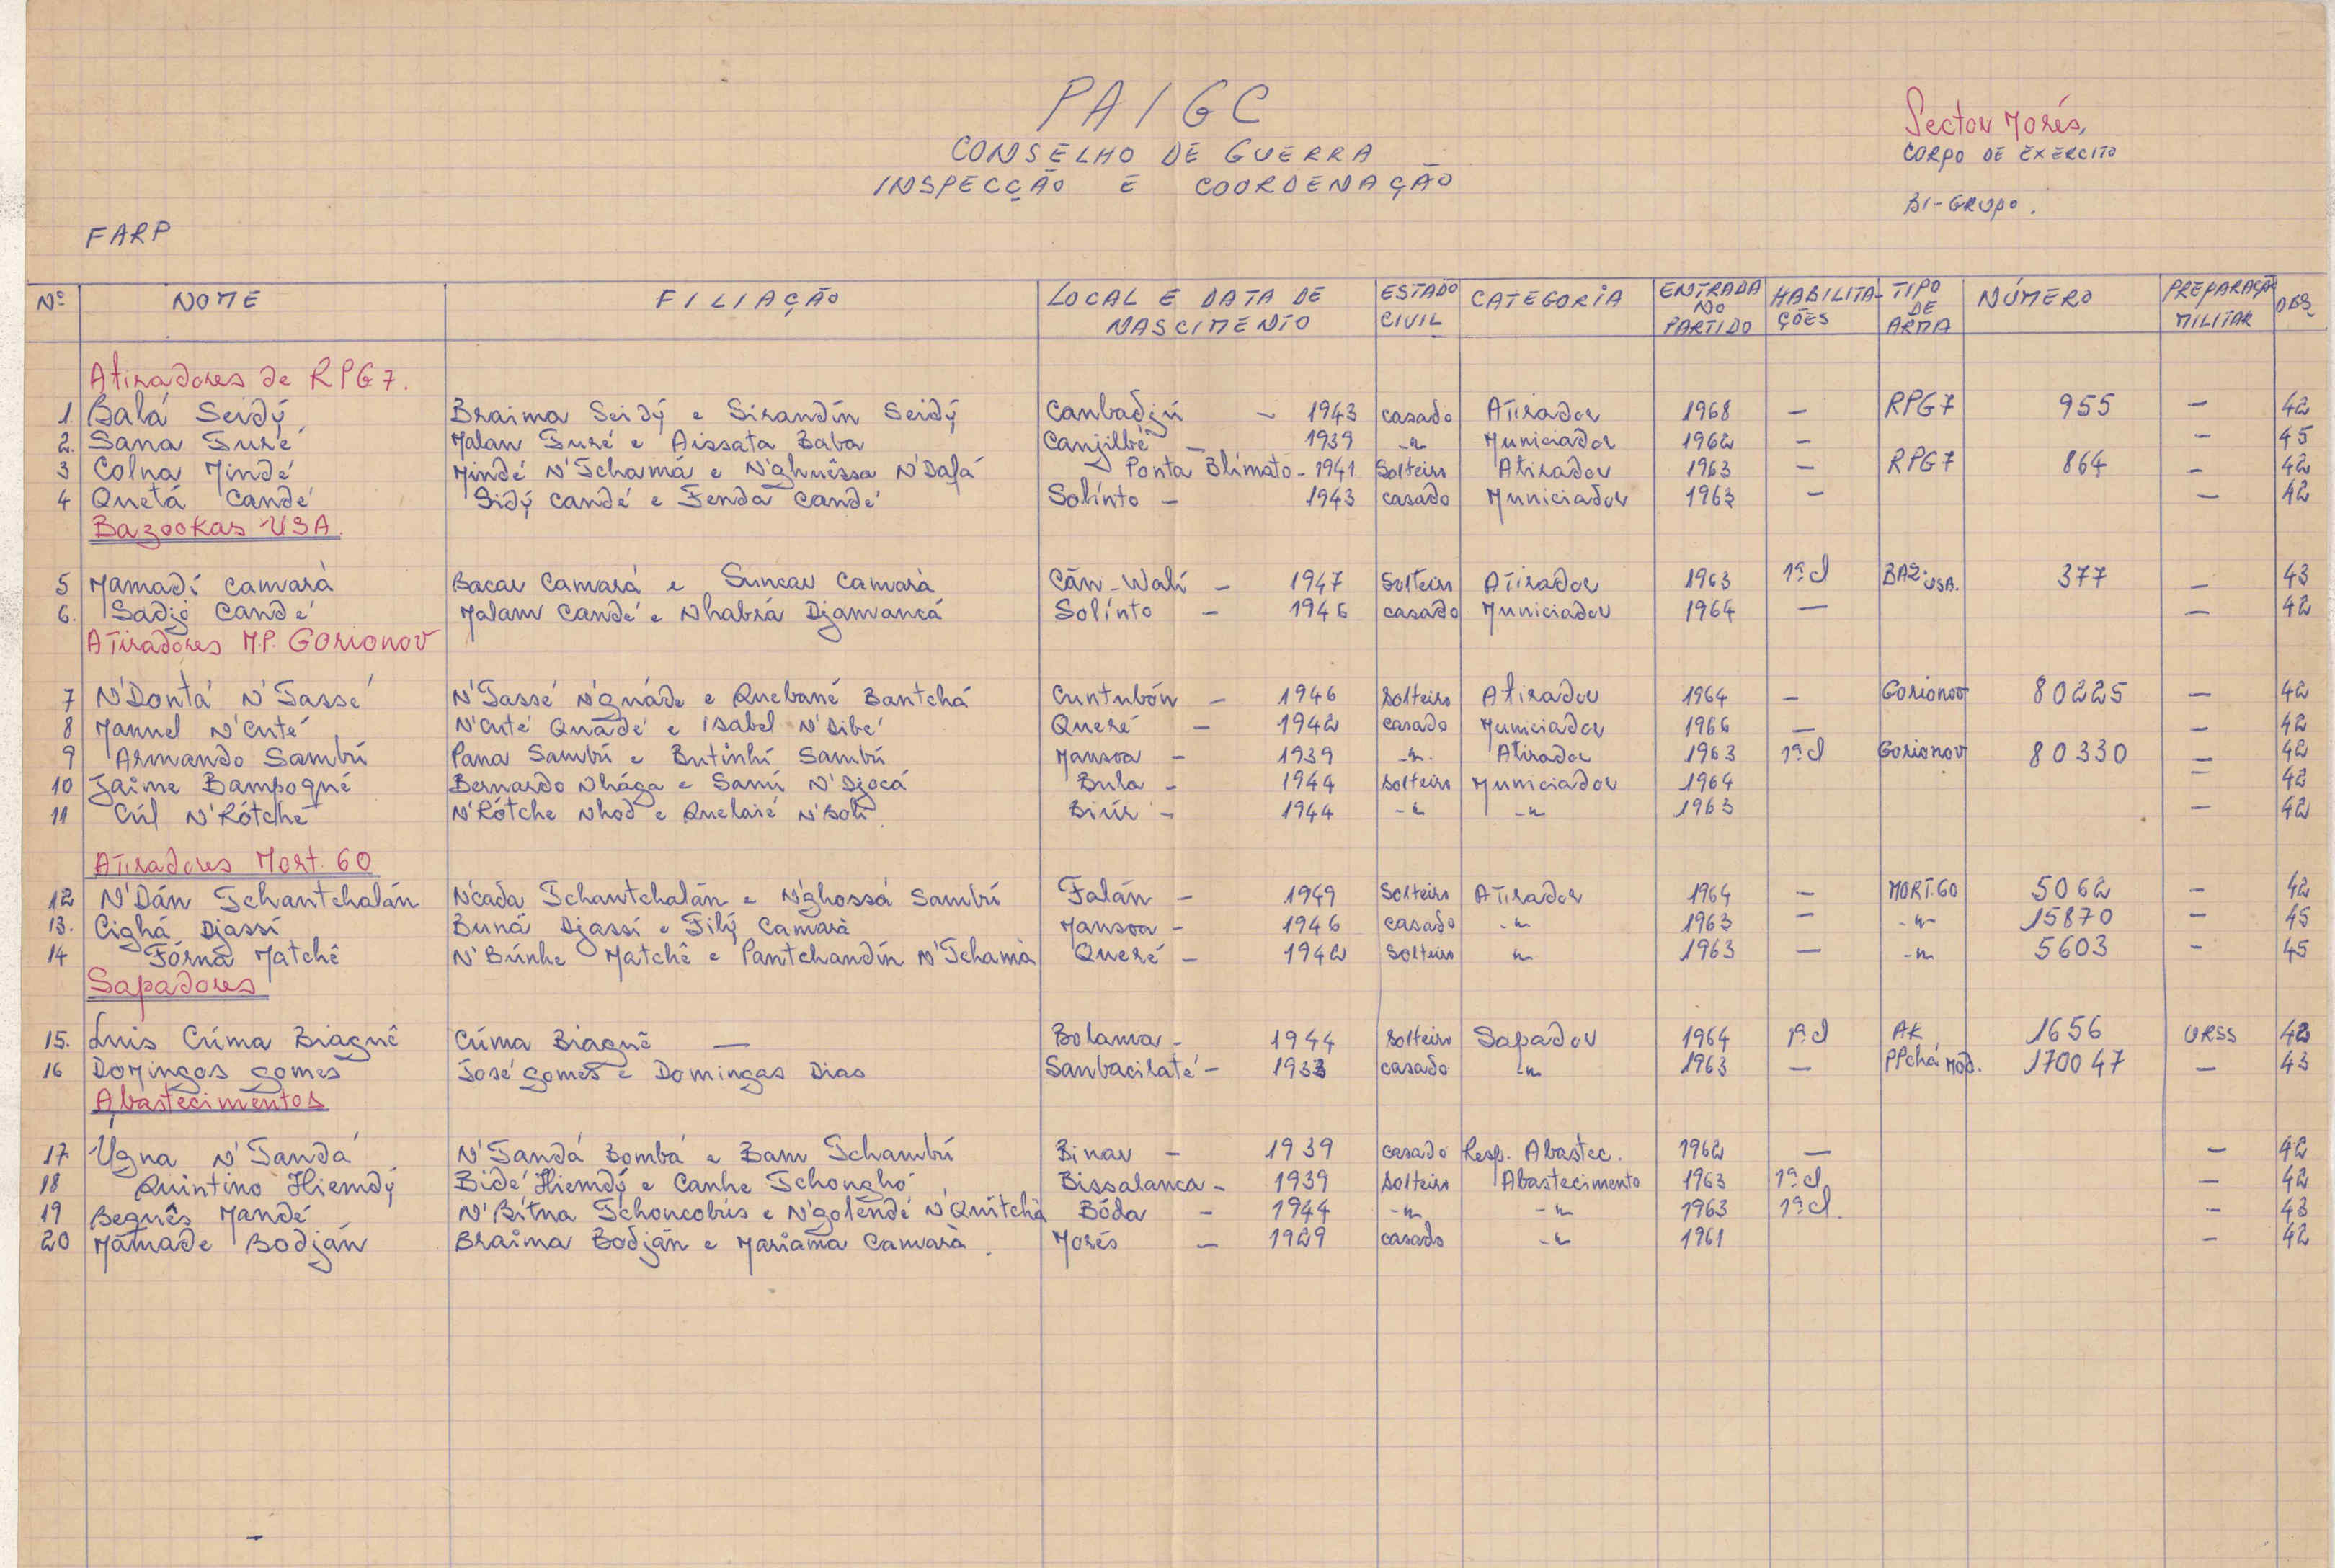 PAIGC
CONSELHO DE GUERRA
INSPECÇÃO E COORDENAÇÃO
Sector Morés.
CORPO DE EXERCITO
BI-GRUPO.
FARP
Nº NOME FILIAÇÃO LOCAL E DATA DE NASCIMENTO ESTADO CIVIL CATEGORIA ENTRADA NO PARTIDO HABILITAÇÕES TIPO DE ARMA NÚMERO PREPARAÇÃO MILITAR OBS.
Atiradores de RPG7.
1. Balá Seidý Braima Seidý e Sirandín Seidý Canbadjú - 1943 casado Atirador 1968 - RPG7 955 - 42
2. Sana Turé Malan Turé e Aissata Baba Canjilbé - 1939 -"- Municiador 1962 - - 45
3 Colna Mindé Mindé N'Tchamá e N'ghuêssa N'Dafá Ponta Blimato - 1941 Solteiro Atirador 1963 - RPG7 864 - 42
4 Quetá Candé Sidý Candé e Fenda Candé Solínto - 1943 casado Municiador 1963 - - 42
Bazookas USA.
5 Mamadí Camará Bacar Camará e Suncar Camará Cãn-Walí - 1947 Solteiro Atirador 1963 1ª cl BAZ. USA. 377 - 43
6. Sadjó Candé Malam Candé e Nhabrá Djamancá Solínto - 1946 casado Municiador 1964 - - 42
Atiradores M.P. Gorionov
7 N'Dontá N'Tassé N'Tassé N'guáde e Quebané Bantchá Cuntubón - 1946 Solteiro Atirador 1964 - Gorionov 80225 - 42
8 Manuel N'Cuté N'Cuté Quádé e Isabel N'Dibé Queré - 1942 casado Municiador 1966 - - 42
9 Armando Sambú Pana Sambú e Butinhí Sambú Mansoa - 1939 -"- Atirador 1963 1ª cl Gorionov 80330 - 42
10 Jaime Bampoqné Bernardo Nhága e Samí N'Djocá Bula - 1944 Solteiro Municiador 1964 - 42
11 Cúl N'Rótche N'Rótche Nhod e Quelaié N'Boli Biúr - 1944 -"- -"- 1963 - 42
Atiradores Mort. 60
12 N'Dán Tchantchalán N'cada Tchantchalán e N'ghossá Sambú Falán - 1949 Solteiro Atirador 1964 - MORT.60 5062 - 42
13. Cighá Djassí Buná Djassí e Filý Camará Mansoa - 1946 casado -"- 1963 - -"- 15870 - 45
14 Fórna Matchê N'Búnhe Matchê e Pantchandín N'Tchamá Queré - 1942 Solteiro -"- 1963 - -"- 5603 - 45
Sapadores
15. Luis Cúma Biaguê Cúma Biaguê - Bolama - 1944 Solteiro Sapador 1964 1ª cl AK 1656 URSS 42
16 Domingos Gomes José Gomes e Domingas Dias Sanbacilaté - 1933 casado -"- 1963 - PPchá MOD. 170047 - 43
Abastecimentos
17 Ugna N'Tandá N'Tandá Bombá e Bam Tchambú Binar - 1939 casado Resp. Abastec. 1962 - - 42
18 Quintino Hiemdý Bidé Hiemdý e Canhe Tchonghó Bissalanca - 1939 Solteiro Abastecimento 1963 1ª cl - 42
19 Beguês Mandé N'Bítna Tchoncobús e N'golendé N'Quitchá Bóda - 1944 -"- -"- 1963 1ª cl. - 43
20 Mamade Bodján Braima Bodján e Mariama Camará. Morés - 1929 casado -"- 1961 - 42